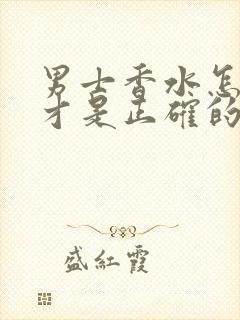 男士香水怎
才是正确的
盛红霞